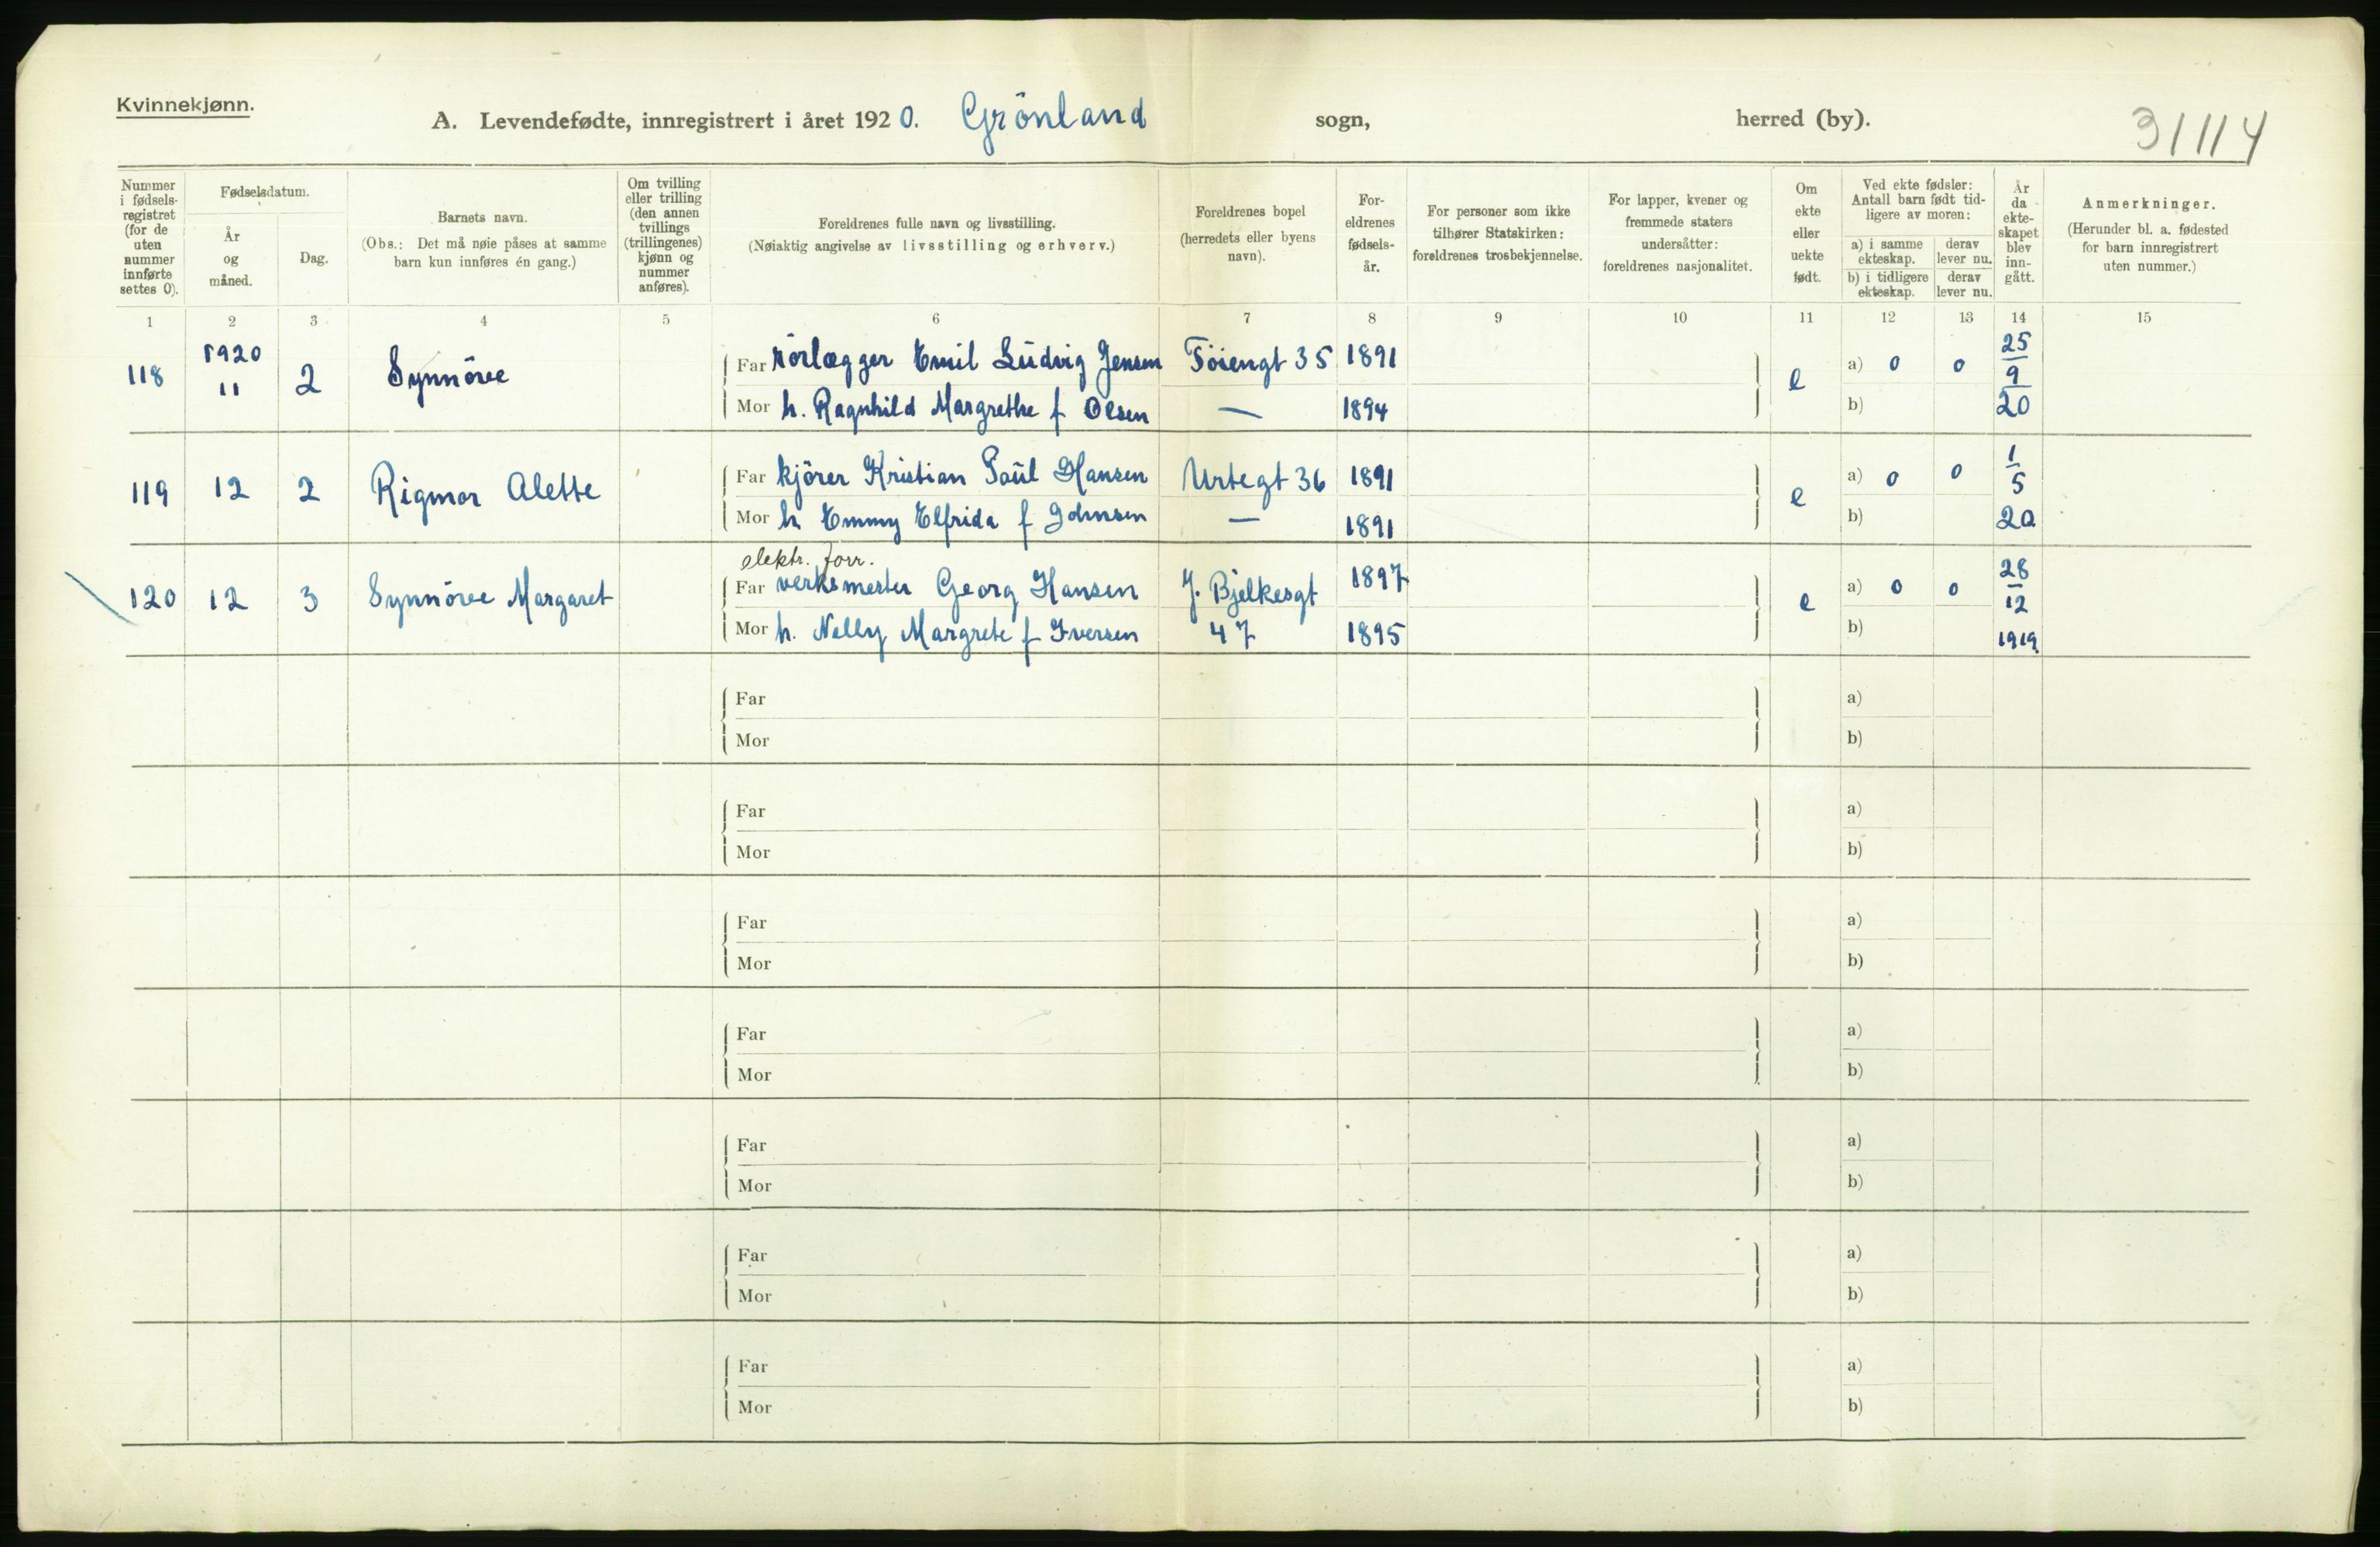 Kvinnekjønn.
A. Levendefødte, innregistrert i året 1920. Grönland sogn, herred (by). 31114
Nummer i fødsels-registret (for de uten nummer innførte settes 0).
Fødselsdatum.
År og måned.
Dag.
Barnets navn.
(Obs.: Det må nøie påses at samme barn kun innføres én gang.)
Om tvilling eller trilling (den annen tvillings (trillingenes) kjønn og nummer anføres).
Foreldrenes fulle navn og livsstilling.
(Nøiaktig angivelse av livsstilling og erhverv.)
Foreldrenes bopel (herredets eller byens navn).
For-eldrenes fødsels-år.
For personer som ikke tilhører Statskirken: foreldrenes trosbekjennelse.
For lapper, kvener og fremmede staters undersåtter: foreldrenes nasjonalitet.
Om ekte eller uekte født.
Ved ekte fødsler: Antall barn født tid-ligere av moren:
a) i samme ekteskap. derav lever nu.
b) i tidligere ekteskap. derav lever nu.
År da ekte-skapet blev inn-gått.
Anmerkninger.
(Herunder bl. a. fødested for barn innregistrert uten nummer.)
1 2 3 4 5 6 7 8 9 10 11 12 13 14 15
118 1920 11 2 Synnöve Far rörlægger Emil Ludvig Jensen Töiengt 35 1891 e a) 0 0 25/9 20
Mor h. Ragnhild Margrethe f Olsen — 1894 b)
119 12 2 Rigmor Alette Far kjörer Kristian Paul Hansen Urtegt 36 1891 e a) 0 0 1/5 20
Mor h Emmy Elfrida f Johnsen — 1891 b)
elektr. forr.
120 12 3 Synnöve Margaret Far verksmester Georg Hansen J. Bjelkesgt 1897 e a) 0 0 28/12 1919.
Mor h. Nelly Margrete f Iversen 47 1895 b)
Far a)
Mor b)
Far a)
Mor b)
Far a)
Mor b)
Far a)
Mor b)
Far a)
Mor b)
Far a)
Mor b)
Far a)
Mor b)